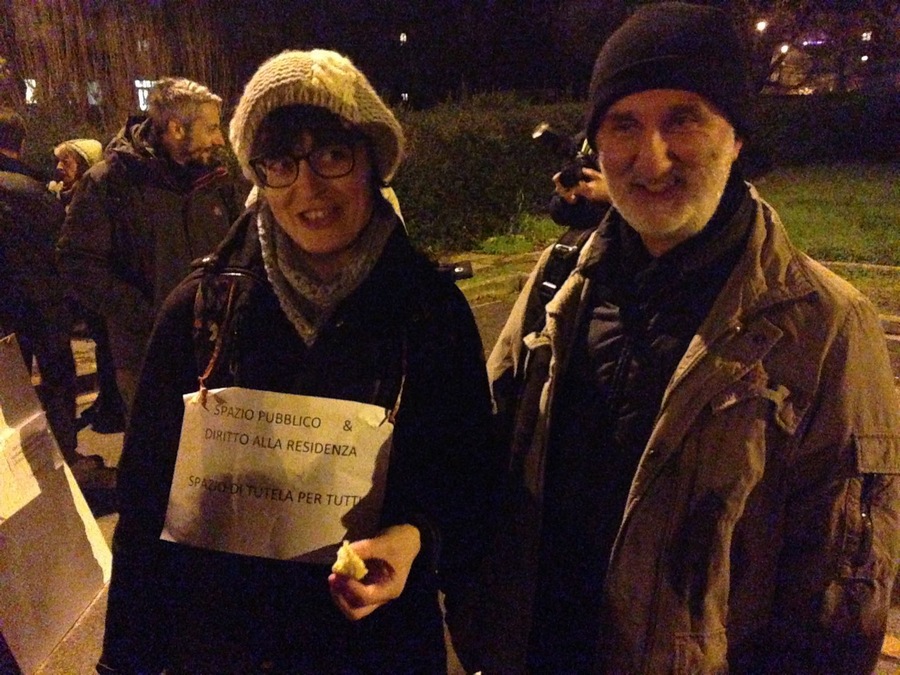 SPAZIO PUBBLICO &
DIRITTO ALLA RESIDENZA
SPAZIO DI TUTELA PER TUTTI